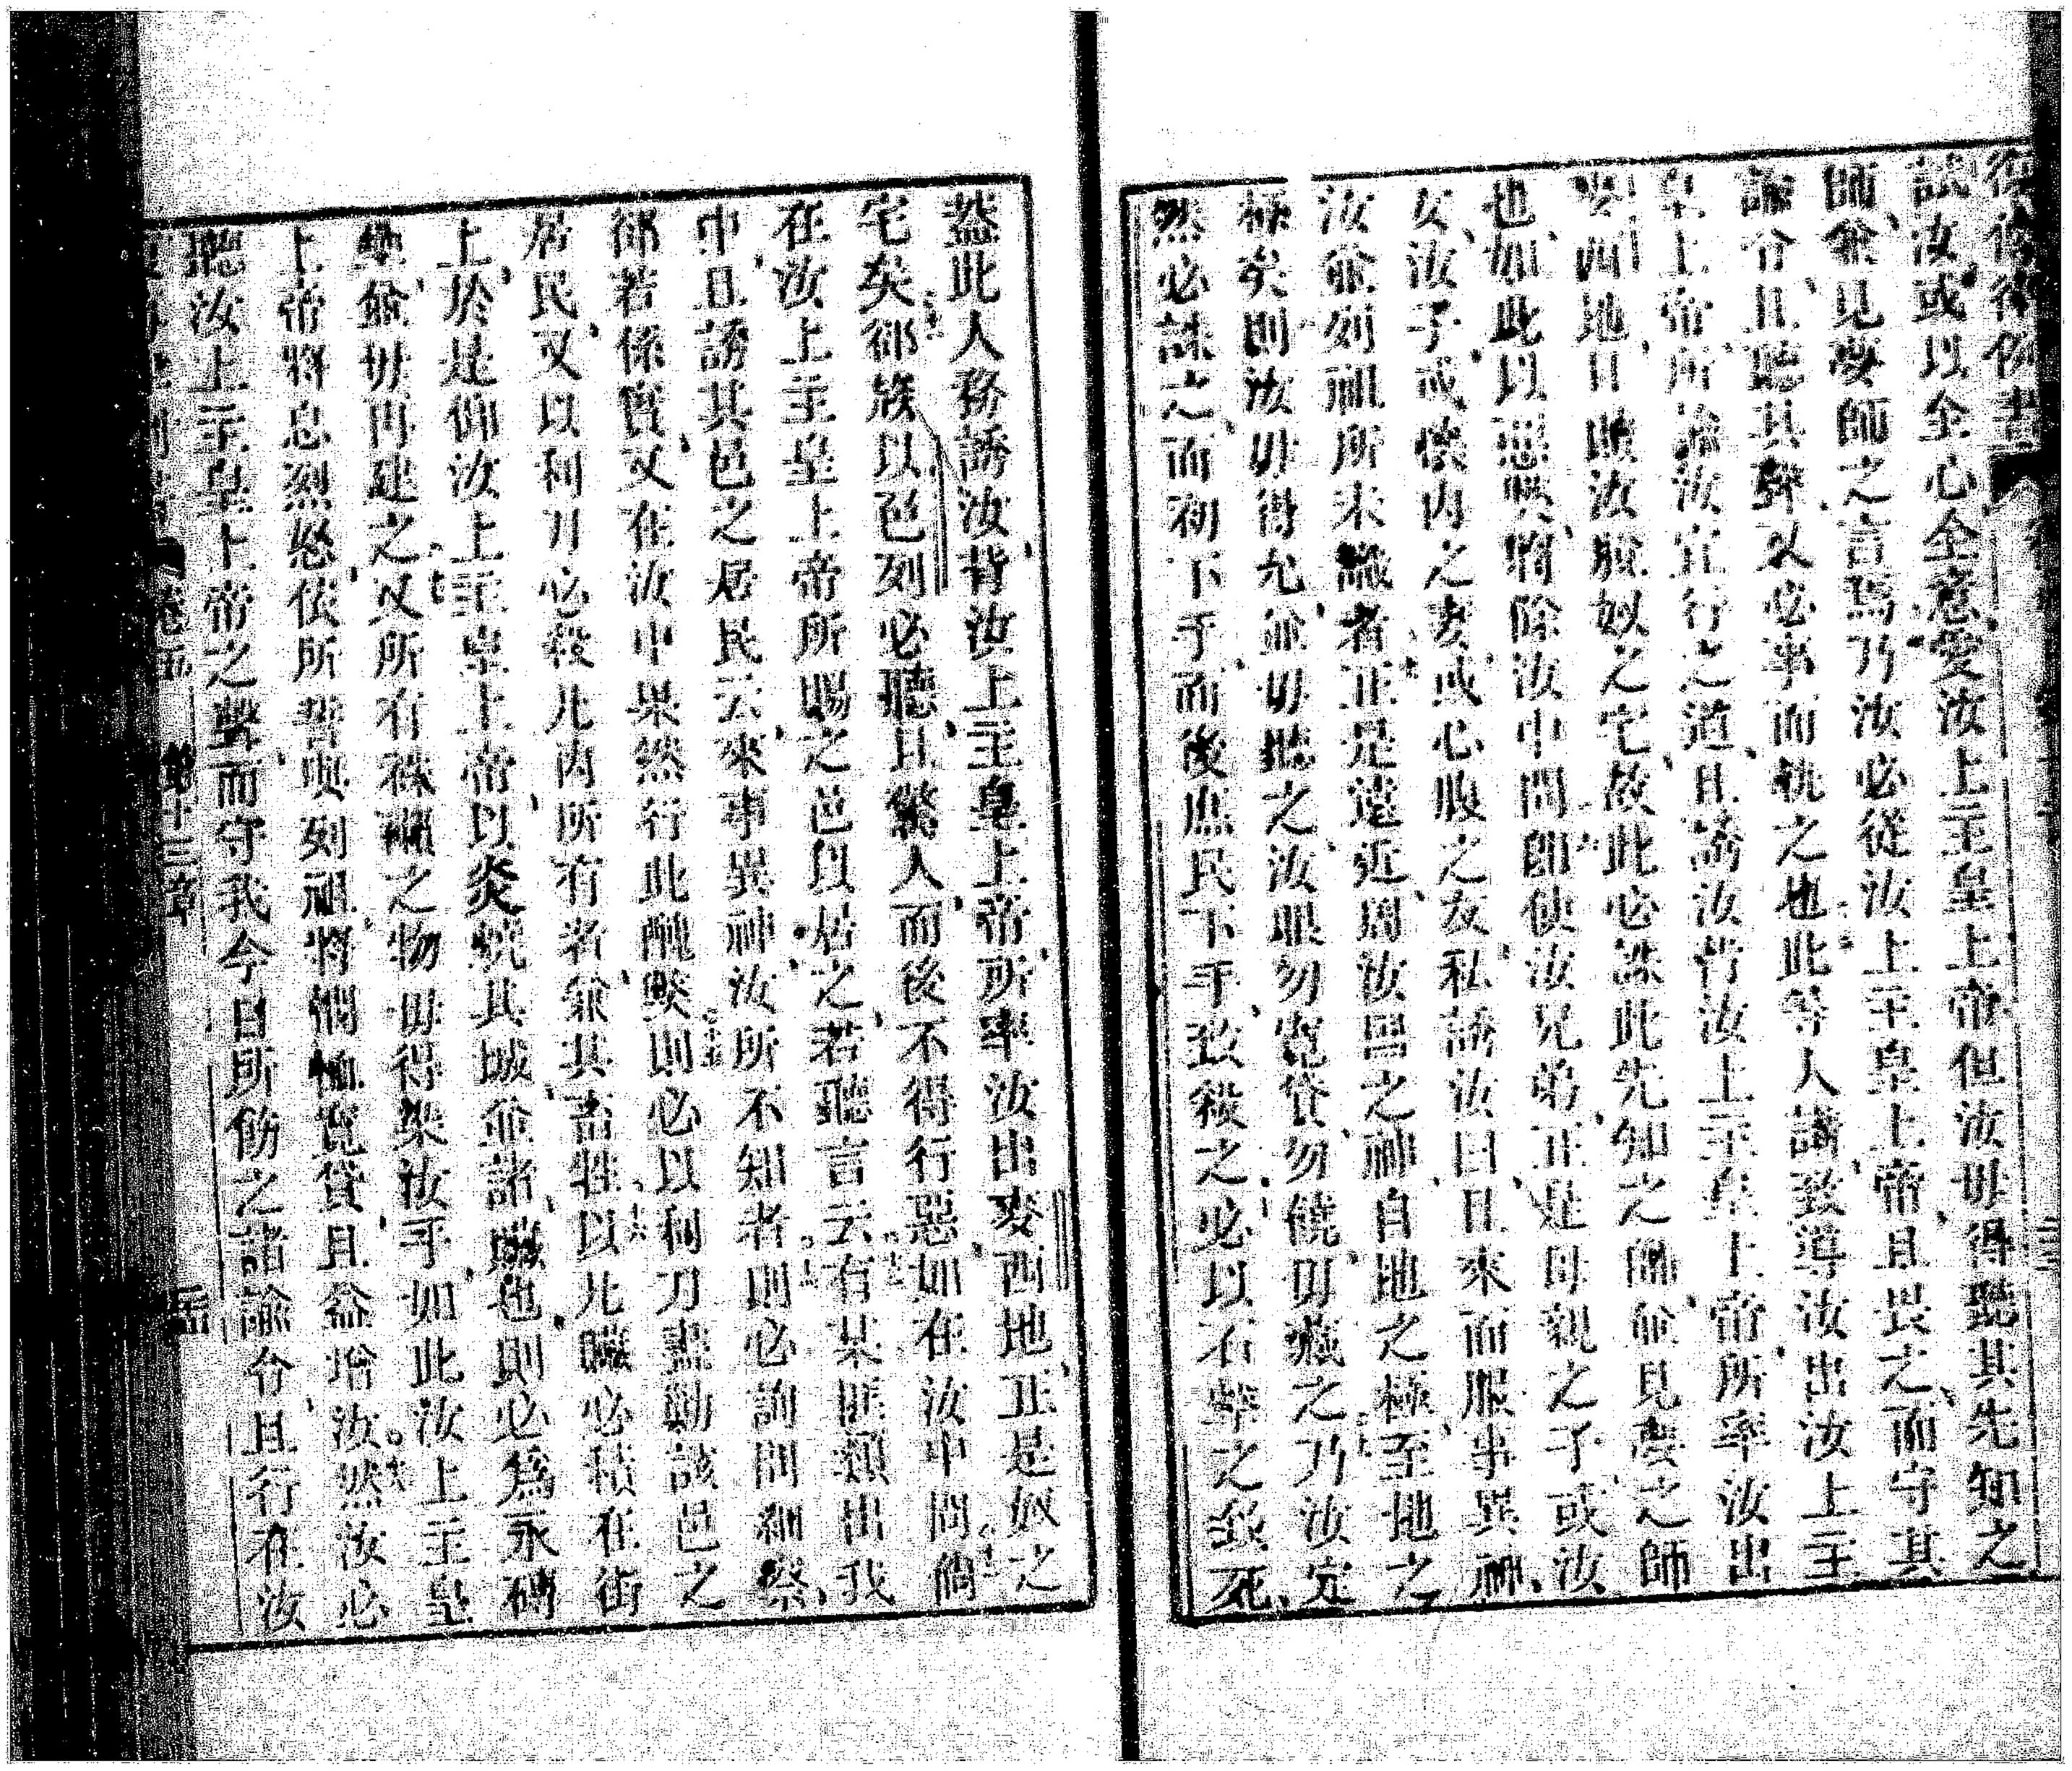 試汝或以全心全意愛汝上主皇上帝但汝毋得聽其先知之
師兼見夢師之言焉乃汝必從汝上主皇上帝且畏之而守其
諭令且聽其聲又必事而執之也此等人講致導汝出汝上主
皇上帝所諭汝宜行之道且誘汝背汝上主皇上帝所率汝出
麥西地且贖汝脫奴之宅故此必誅此先知之師兼見夢之師
也如此以惡將除汝中間卽使汝兄弟正是母親之子或汝
女汝子或懷內之妻或心腹之友私誘汝曰且來而服事異神
汝並列祖所未識者正是遠近周汝國之神自地之極至地之
極矣則汝毋得允並毋聽之汝眼勿寬貸勿饒毋藏之乃汝定
然必誅之而初下手而後庶民下手致殺之必以石擊之致死
蓋此人務誘汝背汝上主皇上帝所率汝出麥西地正是奴之
宅矣郤族以色列必聽且驚人而後不得行惡如在汝中間倘
在汝上主皇上帝所賜之邑以居之若聽言云有某匪類出我
中且誘其邑之居民云來事異神汝所不知者則必詢問細察
郤若係實又在汝中果然行此醜則必以利刀盡勦該邑之
居民又以利刀必殺凡內所有者兼其畜牲以凡贓必積在街
上於是仰汝上主皇上帝以炎燒其城並諸贓也則必爲永碑
毋再建之又所有之物毋得染汝手如此汝上主皇
上帝將息烈怒依所誓與列祖將憫恤寬貸且益增汝然汝必
聽汝上主皇上帝之聲而守我今日所飭之諸諭令且行在汝
卷五 第十三章